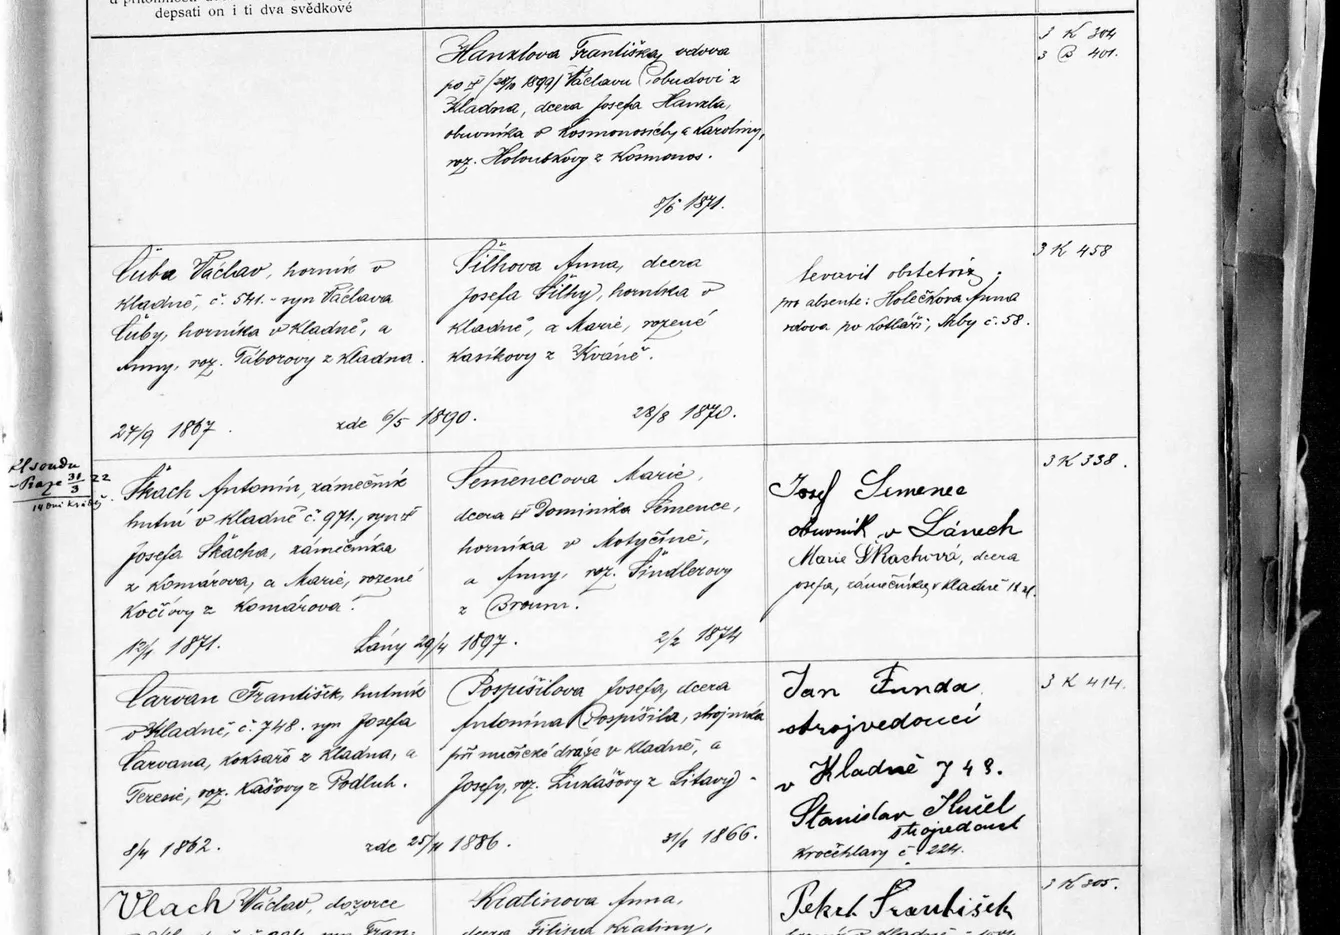 depsati on i ti dva svědkové
Hanzlova Františka, vdova
po † (28/10 1899) Václavu Pobudovi z
Kladna, dcera Josefa Hanzla,
obuvníka v Kosmonosích, a Karoliny,
roz. Holoubkovy z Kosmonos.
8/5 1871.
3 K 304
3 B 401.
Čuba Václav, horník v
Kladně, č. 541. - syn Václava
Čuby, horníka v Kladně, a
Anny, roz. Táborovy z Kladna.
24/9 1867.
zde 6/5 1890.
Šilhova Anna, dcera
Josefa Šilhy, horníka v
Kladně, a Marie, rozené
Kasíkovy z
28/8 1870.
levavit obstetrix;
pro absente: Holečková Anna
vdova po kotláři, č. 58.
3 K 458
31/3 22
Škach Antonín, zámečník
hutní v Kladně č. 971., syn †
Josefa Škacha, zámečníka
z Komárova, a Marie, rozené
Kočíovy z Komárova.
12/1 1871.
Lány 29/4 1897.
Semenecova Marie,
dcera † Dominika Semence,
horníka v Motyčíně,
a Anny, roz. Šindlerovy
z Broum.
2/2 1874
Josef Semenec
obuvník v Lánech
Marie Škachová, dcera
Josefa, zámečníka v Kladně
3 K 338.
Carvan František, hutník
v Kladně, č. 748. syn Josefa
Carvana, koksaře z Kladna, a
Terezie, roz. Kašovy z Podluh.
8/4 1862.
zde 25/11 1886.
Pospíšilova Josefa, dcera
Antonína Pospíšila, strojníka
při nučické dráze v Kladně, a
Josefy, roz. Lukášovy z Litavy -
31/1 1866.
Jan Funda
strojvedoucí
v Kladně 749.
Stanislav Kučel
strojvedoucí
Kročehlavy č. 224.
3 K 414.
Vlach Václav, dozorce
Kratinova Anna,
dcera Filipa Kratiny,
Pekrt František
3 K 305.